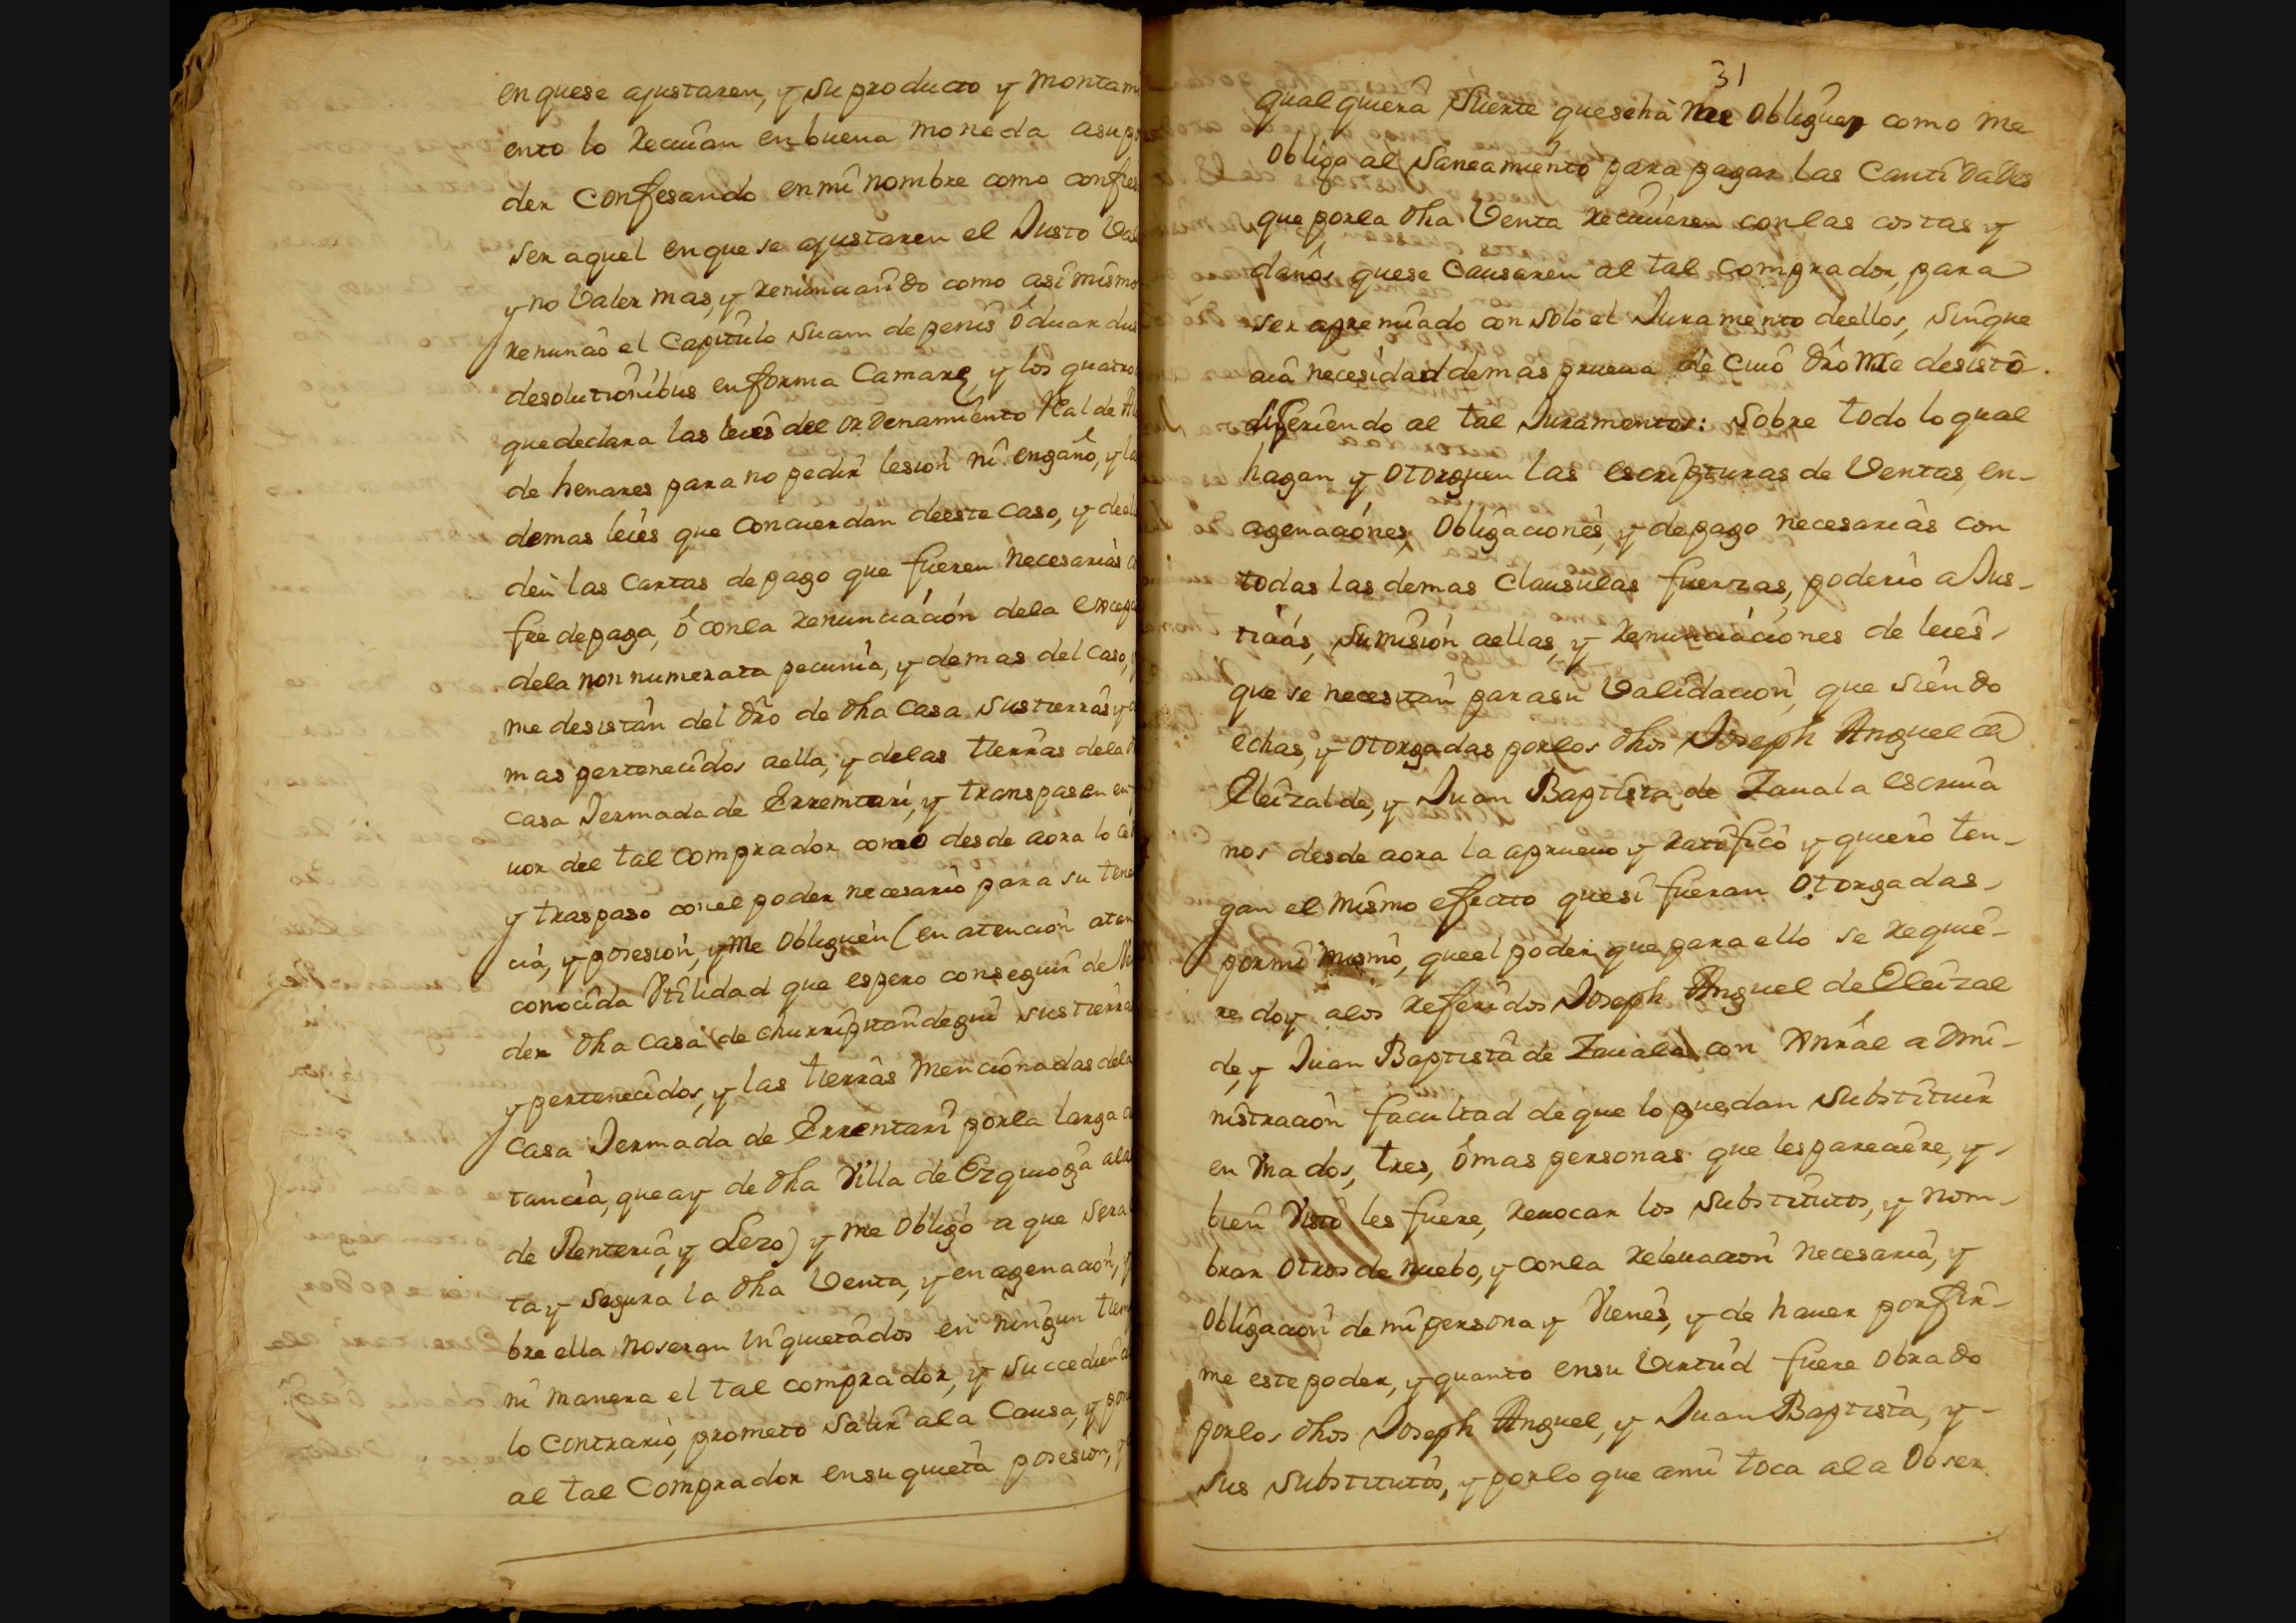 en quese ajustaren, y su producto y montami
ento lo Reciuan en buena moneda asupo
der Confesando en mi nombre como confies
ser aquel en que se ajustaren el Justo Val
y no Valer mas, y Renunciando como asi mismo
Renuncio el Capitulo suam de penis ô duardus
desolutionibus en forma Camare, y los quatro
que declara las leies del ordenamiento Real de Al
de henares para no pedir lesion ni engaño, y la
demas leies que Concuerdan deeste Caso, y deel
den las Cartas de pago que fueren necesarias
fee de paga, ô con la Renunciacion dela excep
dela non numerata pecunia, y demas del Caso, y
me desistan del dro de dha Casa sus tierras y
mas pertenecidos aella, y delas tierras dela
casa Jermada de Errentari, y transpasen en
uor del tal Comprador como desde aora lo ce
y traspaso con el poder necesario para su tene
cia, y posesion, y me obliguen (en atencion a tan
conocida Vtilidad que espero conseguir de Ve
der dha casa de churriputandegui sus tierras
y pertenecidos, y las tierras mencionadas dela
Casa Jermada de Errentari por la larga
tancia, que ay de dha Villa de Ezquioga ala
de Renteria, y Lezo) y me obligo a que sera
ta y segura la dha Venta, y enagenacion, y
bre ella no seran inquietados en ningun tiem
ni manera el tal comprador, y succedien
lo Contrario, prometo salir ala Causa, y pon
al tal Comprador en su quieta posesion, y
31
qualquiera Suerte quesehà me obliguen como me
obligo al Saneamiento para pagar las Cantidades
que por la dha Venta Reciuieren con las costas y
daños quese Causaren al tal Comprador, para
ser apremiado con solo el Juramento deellos, sin que
aia necesidad demas prueua de cuio dro me desisto.
difiriendo al tal Juramentos: Sobre todo lo qual
hagan y otorguen las escripturas de Ventas, en-
agenaciones, Obligaciones, y de pago necesarias con
todas las demas Clausulas fuerzas, poderio a Jus-
ticias, sumision aellas, y Renunciaciones de leies
que se necesitan para su Validacion, que siendo
echas, y otorgadas por los dhos Joseph Anguel de
Eleizalde, y Juan Baptista de Zauala escriua
nos desde aora la aprueuo y Ratifico y quiero ten-
gan el mismo efecto que si fueran Otorgadas
por mi mismo, que el poder que para ello se Requie-
re doy alos Referidos Joseph Anguel de Eleizal
de, y Juan Baptista de Zauala con Annâl admi-
nistracion facultad de que lo puedan substituir
en vna dos, tres, ô mas personas que les pareciere, y
bien Visto les fuere, Reuocar los substitutos, y nom-
brar Otros de nuebo, y con la Releuacion necesaria, y
Obligacion de mi persona y Vienes, y de hauer por fir-
me este poder, y quanto en su Virtud fuere obrado
por los dhos Joseph Anguel, y Juan Baptista, y
sus substitutos, y por lo que ami toca ala Obser